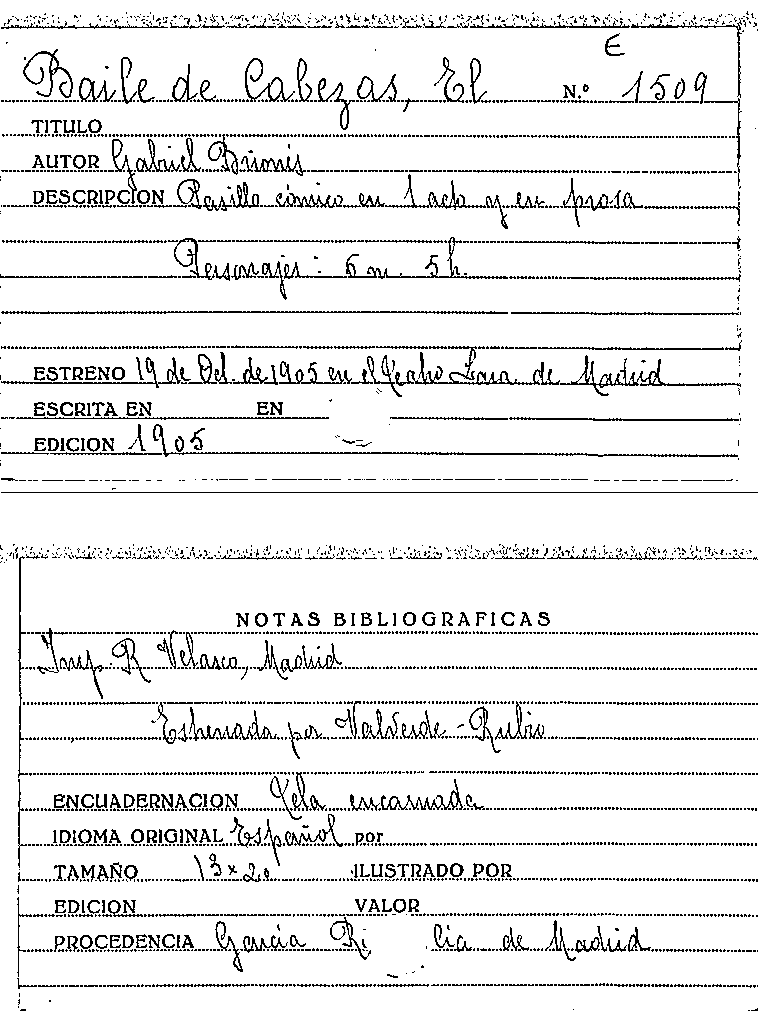 E
Baile de Cabezas, El N.º 1509
TITULO
AUTOR Gabriel Briones
DESCRIPCION Pasillo cómico en 1 acto y en prosa
Personajes: 6 m. 5 h.
ESTRENO 19 de Oct. de 1905 en el Teatro Lara de Madrid
ESCRITA EN EN
EDICION 1905
NOTAS BIBLIOGRAFICAS
Imp. R Velasco, Madrid
Estrenada por Valverde - Rubio
ENCUADERNACION Tela encarnada
IDIOMA ORIGINAL Español por
TAMAÑO 13 x 20 ILUSTRADO POR
EDICION VALOR
PROCEDENCIA García de Madrid